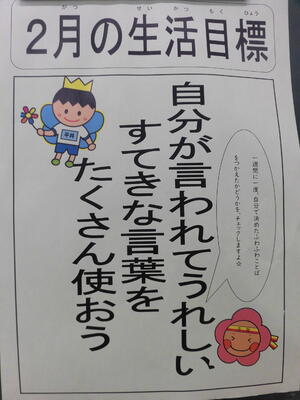 がつ せいかつもくひょう
2月の生活目標
自分が言われてうれしい
すてきな言葉を
たくさん使おう
一週間に一度、自分で決めたふわふわことば
をつかえたかどうかを、チェックしますよ☆